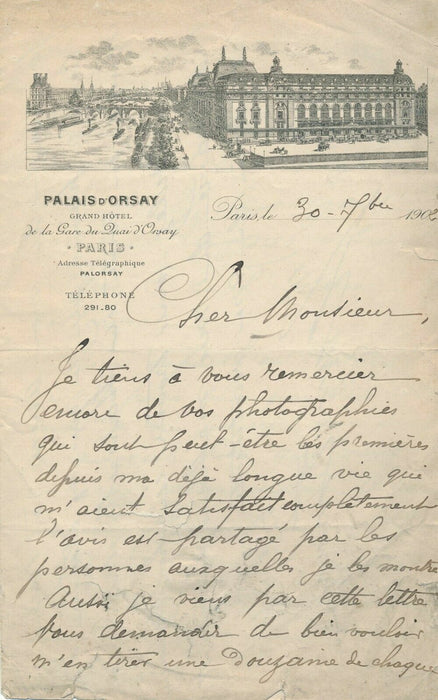 PALAIS D'ORSAY
GRAND HÔTEL
de la Gare du Quai d'Orsay
PARIS
Adresse Télégraphique
PALORSAY
TÉLÉPHONE
291.80
Paris, le 30 - 7bre 1902
Cher Monsieur,
Je tiens à vous remercier
encore de vos photographies
qui sont peut-être les premières
depuis ma déjà longue vie qui
m'aient satisfait complètement
l'avis est partagé par les
personnes auxquelles je les montre
Aussi je viens par cette lettre
vous demander de bien vouloir
m'en tirer une douzaine de chaque